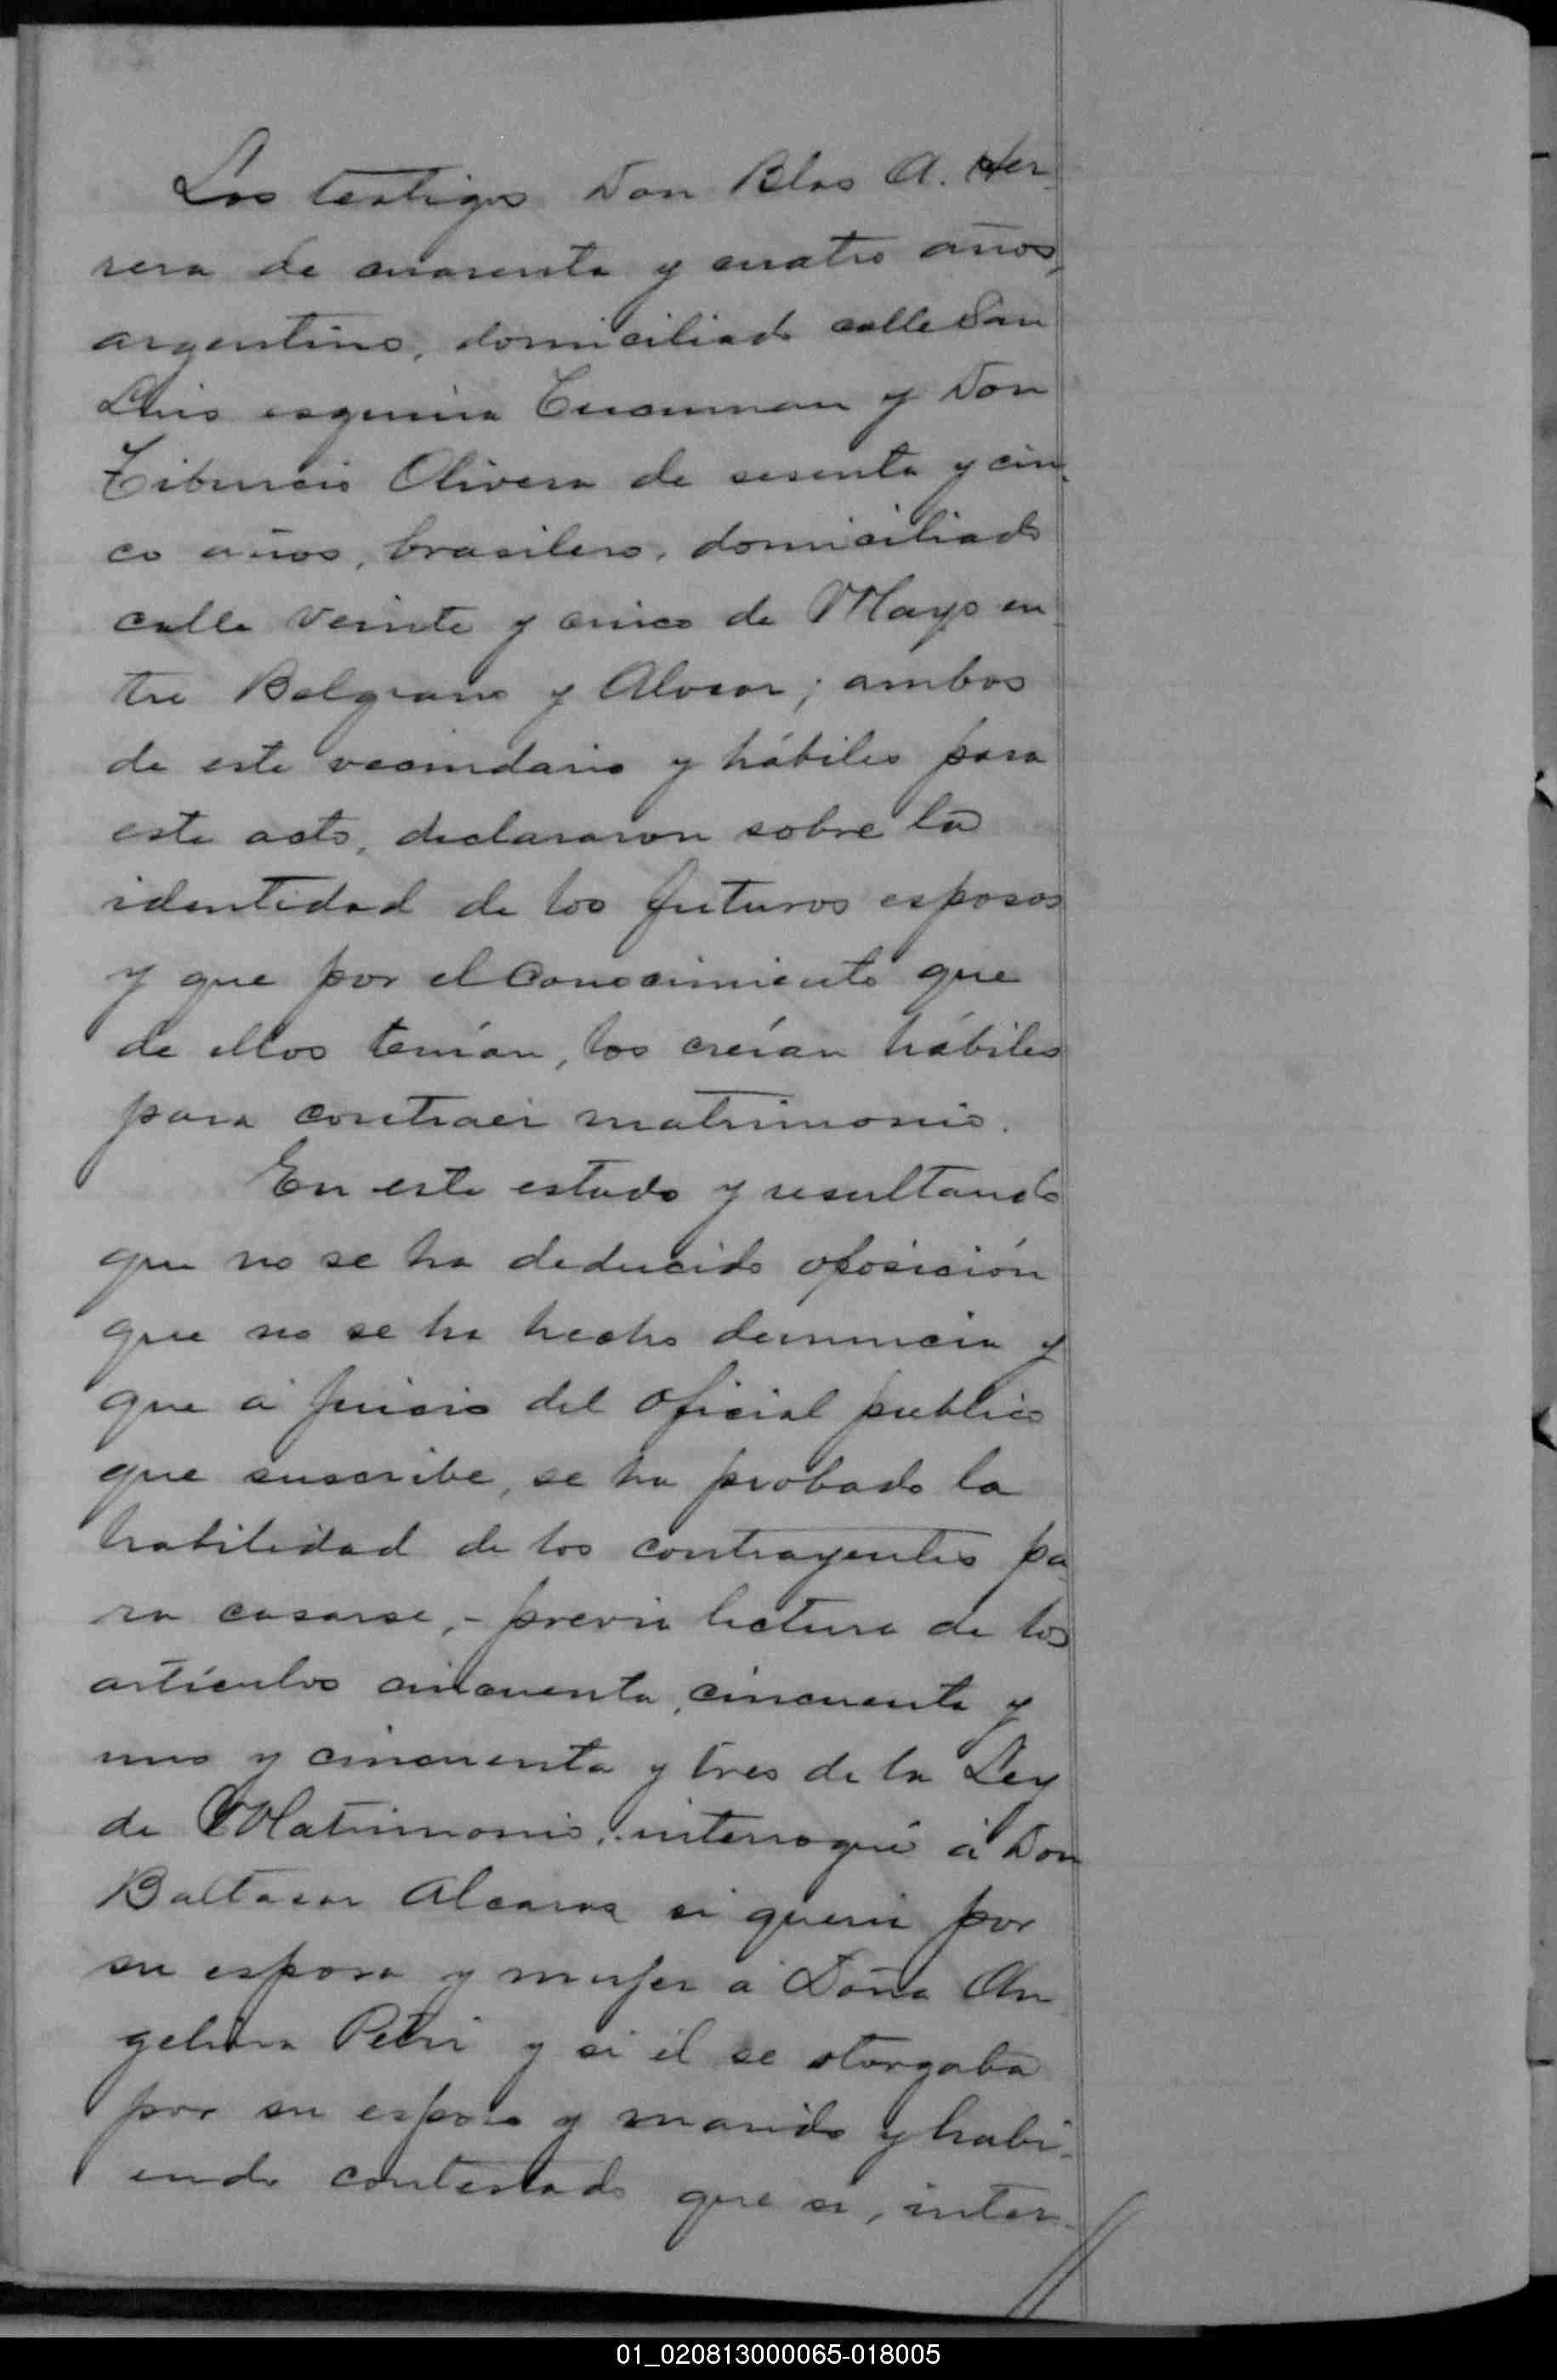 Los testigos Don Blas A. Her-
rera de cuarenta y cuatro años,
argentino, domiciliado calle San
Luis esquina Tucuman y Don
Tiburcio Olivera de sesenta y cin-
co años, brasilero, domiciliado
calle Veinte y cinco de Mayo en-
tre Belgrano y Alvear; ambos
de este vecindario y hábiles para
este acto, declararon sobre la
identidad de los futuros esposos
y que por el conocimiento que
de ellos tenían, los creían hábiles
para contraer matrimonio.
En este estado y resultando
que no se ha deducido oposición
que no se ha hecho denuncia y
que á juicio del oficial publico
que suscribe, se ha probado la
habilidad de los contrayentes pa-
ra casarse,- previa lectura de los
artículos cincuenta, cincuenta y
uno y cincuenta y tres de la Ley
de Matrimonio, interrogué á Don
Baltasar Alcaraz si queria por
su esposa y mujer á Doña An-
gelina Petri y si él se otorgaba
por su esposo y marido y habi-
endo contestado que si, inter-
01_020813000065-018005